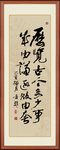 歷覽古今多少事
成由謙遜敗由奢